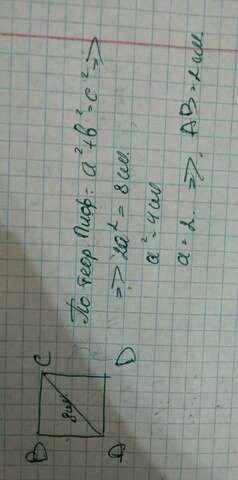 По теор. Пиф.: a² + b² = c² =>
=> 2a² = 8 см
a² = 4 см
a = 2 => AB = 2 см
B C
8 см
A D